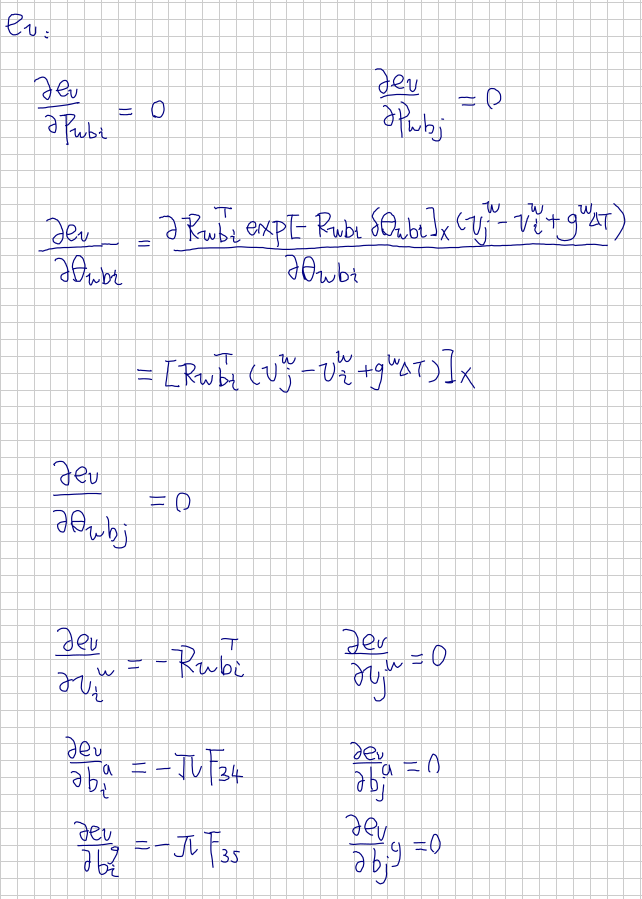 e_v:
∂e_v/∂P_wbi = 0    ∂e_v/∂P_wbj = 0
∂e_v/∂θ_wbi = ∂R_wbi^T exp[-R_wbi δθ_wbi]_× (v_j^w - v_i^w + g^w ΔT) / ∂θ_wbi
= [R_wbi^T (v_j^w - v_i^w + g^w ΔT)]_×
∂e_v/∂θ_wbj = 0
∂e_v/∂v_i^w = -R_wbi^T    ∂e_v/∂v_j^w = 0
∂e_v/∂b_i^a = -πF_34    ∂e_v/∂b_j^a = 0
∂e_v/∂b_i^g = -πF_35    ∂e_v/∂b_j^g = 0